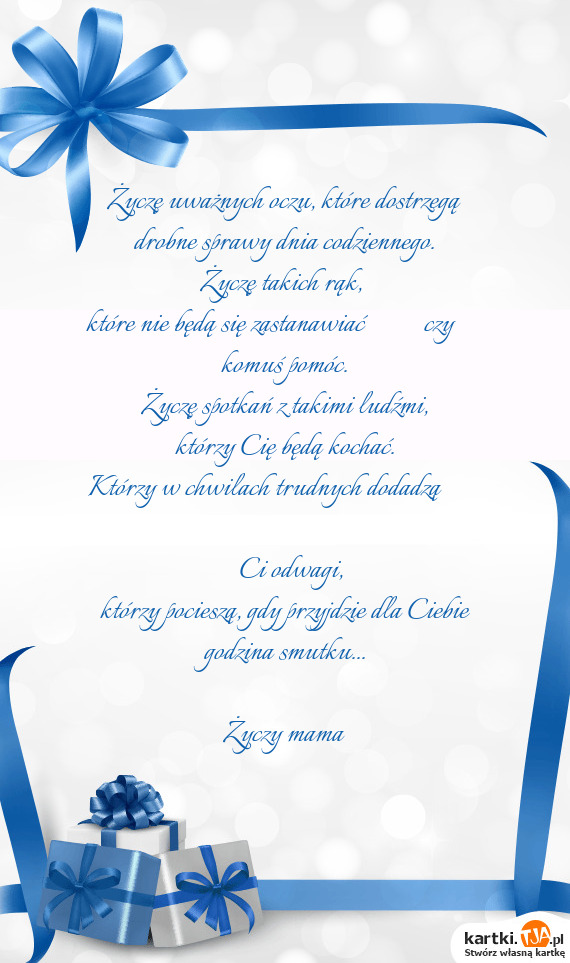 Życzę uważnych oczu, które dostrzegą
drobne sprawy dnia codziennego.
Życzę takich rąk,
które nie będą się zastanawiać czy
komuś pomóc.
Życzę spotkań z takimi ludźmi,
którzy Cię będą kochać.
Którzy w chwilach trudnych dodadzą
Ci odwagi,
którzy pocieszą, gdy przyjdzie dla Ciebie
godzina smutku...
Życzy mama
kartki.TJA.pl
Stwórz własną kartkę